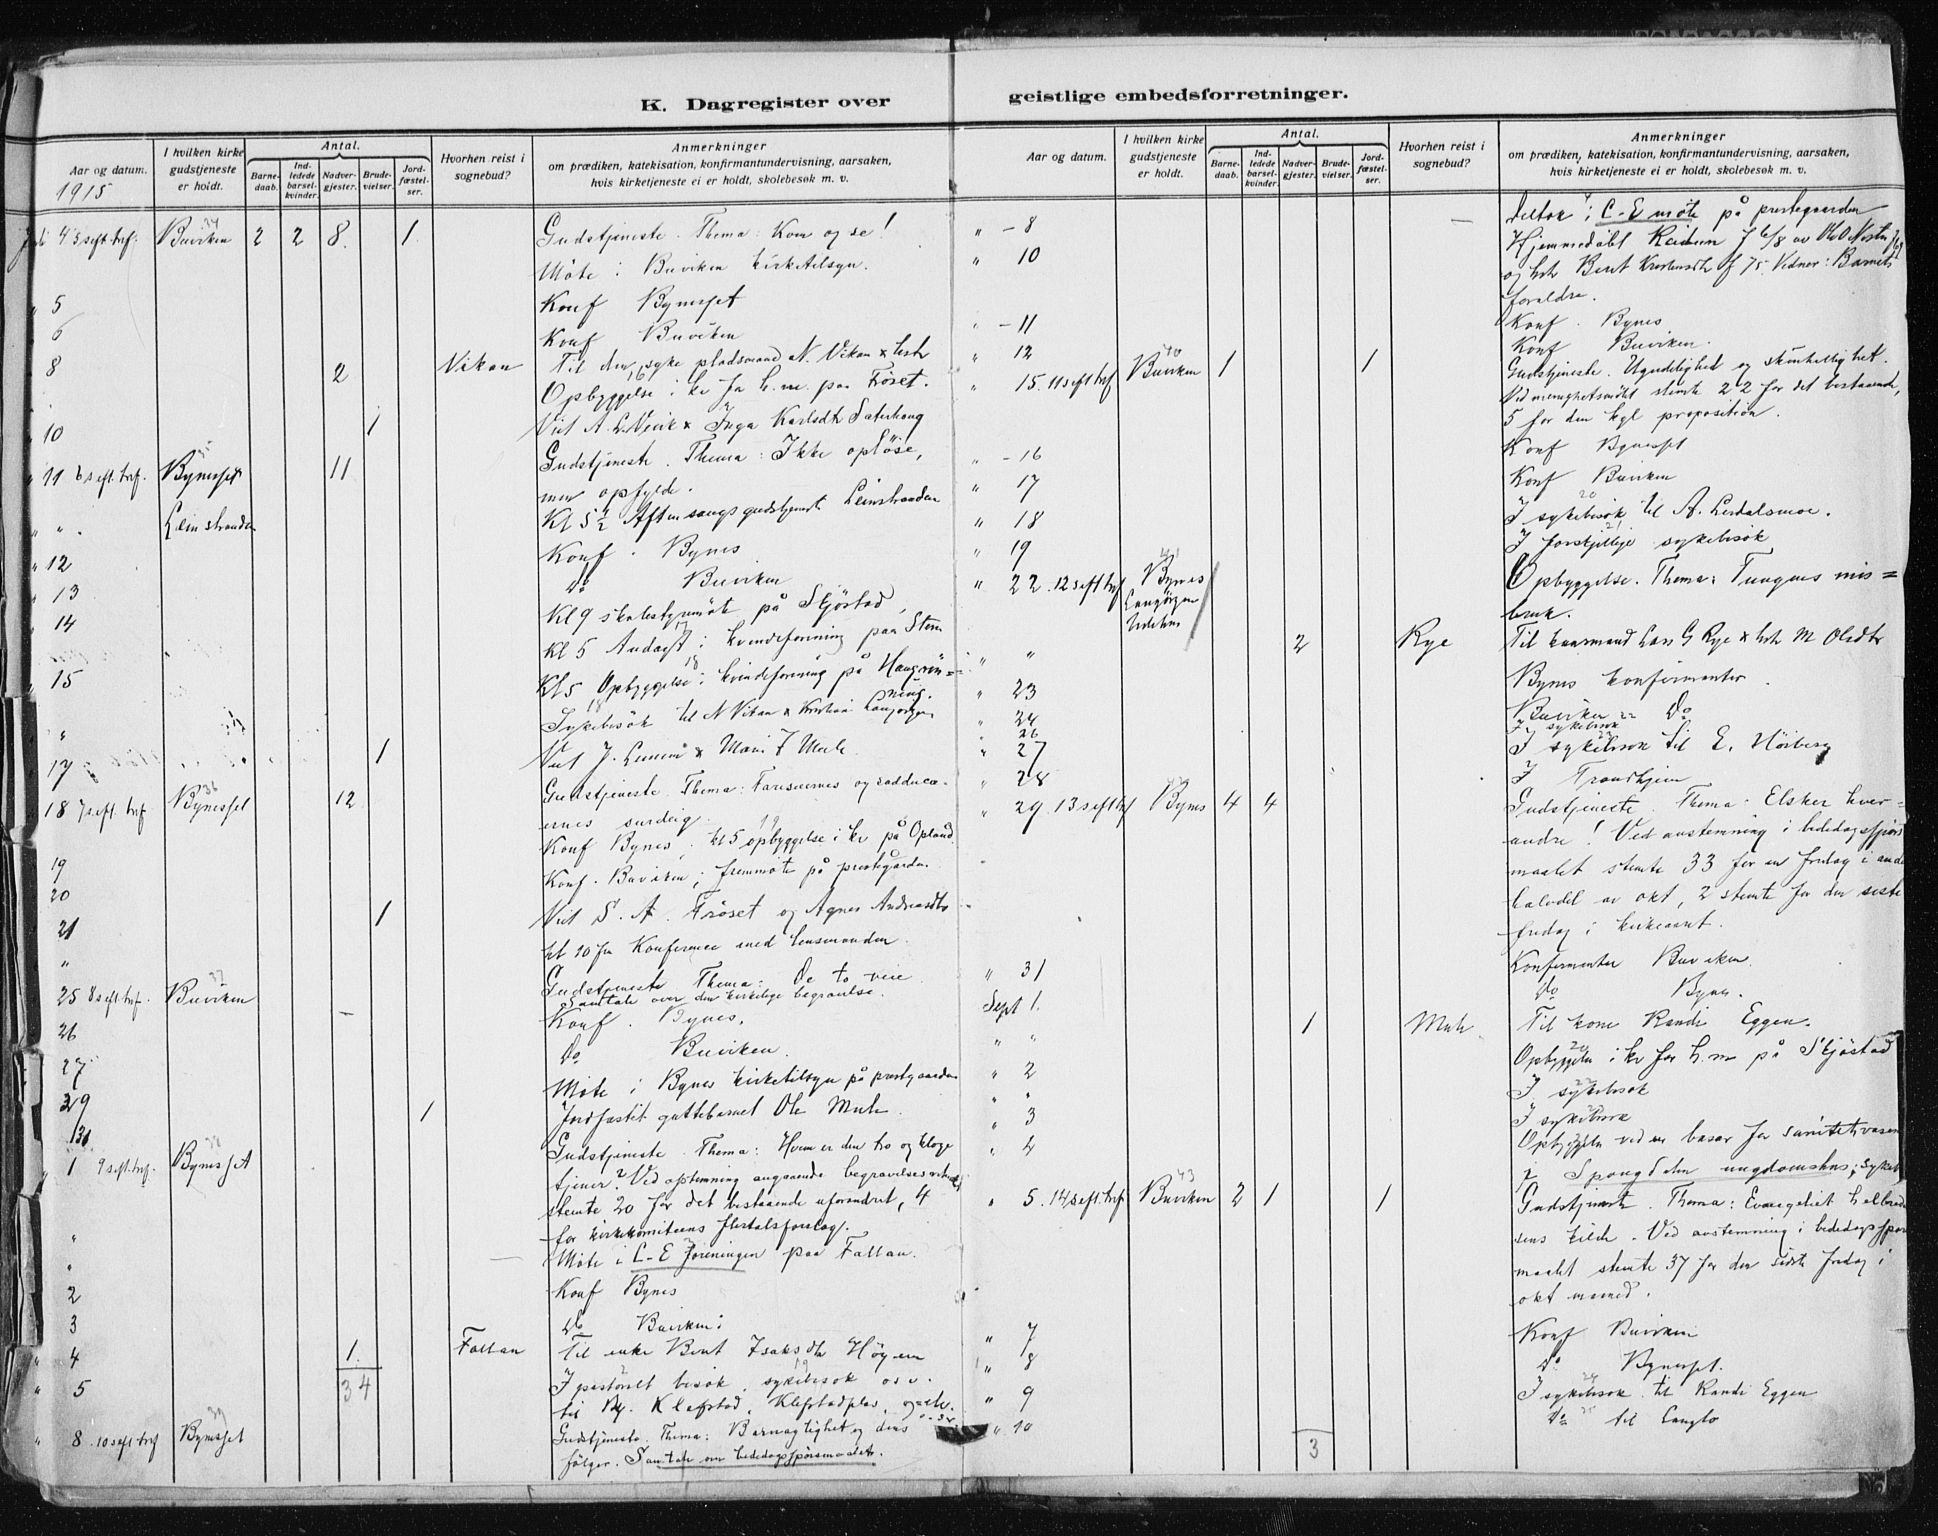 K. Dagregister over
Aar og datum.
1915
I hvilken kirke gudstjeneste er holdt.
Antal.
Barne-daab.
Ind-ledede barsel-kvinder.
Nadver-gjester.
Brude-vielser.
Jord-fæstel-ser.
Hvorhen reist i sognebud?
Anmerkninger
om prædiken, katekisation, konfirmantundervisning, aarsaken,
hvis kirketjeneste ei er holdt, skolebesøk m. v.
4 5 s eft. tref. Buviken 34 2 2 8 1 Gudstjeneste. Thema: Kom og se!
Møte i Buviken kirketilsyn.
" 5 Konf Bynesset
6 Konf Buviken
8 2 Vikan Til den syke pladsmand N. Vikan &
Opbyggelse i kv f h.m. paa Frøset.
" 10 1 Viet A. & Inga Karlsdtr Saterhaug
" 11 6 s eft. tref. Bynesset 11 Gudstjeneste. Thema: Ikke opløse,
men opfylde.
" " Leinstranden Kl 5½ Aftensangsgudstjeneste Leinstranden
" 12 Konf. Bynes
" 13 Do Buviken
14 Kl 9 skolestyremøte på Skjøstad
Kl 5 Andagt i kvindeforening paa Stem
" 15 Kl 5 Opbyggelse i kvindeforening på Haugrøn=
ning.
" Sykebesøk til N Vikan & Kristian Langørgen
17 1 Viet J. & Marie Mule
18 7 s eft. tref. Bynesset 36 12 Gudstjeneste. Thema: Farisæernes og sadducæ-
ernes surdeig.
19 Konf Bynes; kl 5 opbyggelse i kv på Opland
20 Konf. Buviken; fremmøte på prestegården
21 1 Viet S. A. Frøset og Agnes Andreasdtr
" kl 10 fm Konference med lensmanden
25 8 s eft. tref. Buviken 37 Gudstjeneste Thema: De to veie
Samtale over den kirkelige begravelse.
26 Konf. Bynes.
27 Do Buviken.
29 Møte i Bynes kirketilsyn på prestegaarden
31 1 Jordfæstet guttebarnet Ole Mule.
" 1 9 s eft. tref. Bynesset 38 Gudstjeneste Thema: Hvem er den tro og kloge
tjener? Ved avstemning angaaende
stemte 20 for det bestaaende uforandret, 4
for kirkekomiteens flertalsforslag.
" Møte i C-E foreningen paa Foltan.
2 Konf Bynes
3 Do Buviken.
" 4 1 Foltan Til enke Berit Isaksdtr Høgem
" 5 34 I pastoralt besøk, sykebesøk osv.
til Kleftstad, Kleftstadplas,
" 8 10 s eft. tref Bynesset 39 Gudstjeneste. Thema: Barnagtighet og dens
følger. Samtale om bededagsspørsmaalet.
geistlige embedsforretninger.
Aar og datum.
I hvilken kirke gudstjeneste er holdt.
Antal.
Barne-daab.
Ind-ledede barsel-kvinder.
Nadver-gjester.
Brude-vielser.
Jord-fæstel-ser.
Hvorhen reist i sognebud?
Anmerkninger
om prædiken, katekisation, konfirmantundervisning, aarsaken,
hvis kirketjeneste ei er holdt, skolebesøk m. v.
" - 8 Deltok i C-E møte på prestegaarden
" 10 Hjemmedøbt f 6/8 av
og hstr Berit f 75. Vidner: Barnets
forældre.
" - 11 Konf. Bynes
" 12 Konf Buviken.
" 15. 11 s eft tref Buviken 40 1 1 Gudstjeneste. Ugudelighet og skinhellighet.
Ved menighetsmøtet stemte 22 for det bestaaende,
5 for den kgl proposition.
" - 16 Konf Bynesset
" 17 Konf Buviken
" 18 I sykebesøk til A. Lerdalsmoe.
" 19 I forskjellige sykebesøk
" 22. 12 s eft tref Bynes 41 Opbyggelse. Thema: Tungens mis=
Langørgen bruk.
" " 2 Rye Til kaarmand Lars G Rye & hstr M Olsdtr
" 23 Bynes konfirmanter.
" 24 Buviken Do
" 26 I sykebesøk
" 27 I sykebesøk til E. Høiberg
" 28 I Trondhjem
" 29 13 s eft tref Bynes 4 4 Gudstjeneste. Thema: Elsker hver-
andre! Ved avstemning i bededagsspørs
maalet stemte 33 for en fredag i anden
halvdel av okt, 2 stemte for den siste
fredag i kirkeaaret.
" 31 Konfirmanter Buviken
Sept 1. Do Bynes.
" " 1 Mule Til kone Randi Eggen.
" 2 Opbyggelse i kv for h.m på Skjøstad
" " I sykebesøk
" 3 I sykebesøk
" 4 Opbyggelse ved en basar for
i Spongdalen ungdomshus;
" 5. 14 s eft. tref. Buviken 43 2 1 1 Gudstjeneste. Thema: Evangeliet helbre
sens kilde. Ved avstemning i bededagsspørs
maalet stemte 37 for den sidste fredag i
okt maaned.
" 7 Konf Buviken
" 8 Do Bynesset.
" 9 I sykebesøk til Randi Eggen
" 10 3 Do til Langlo